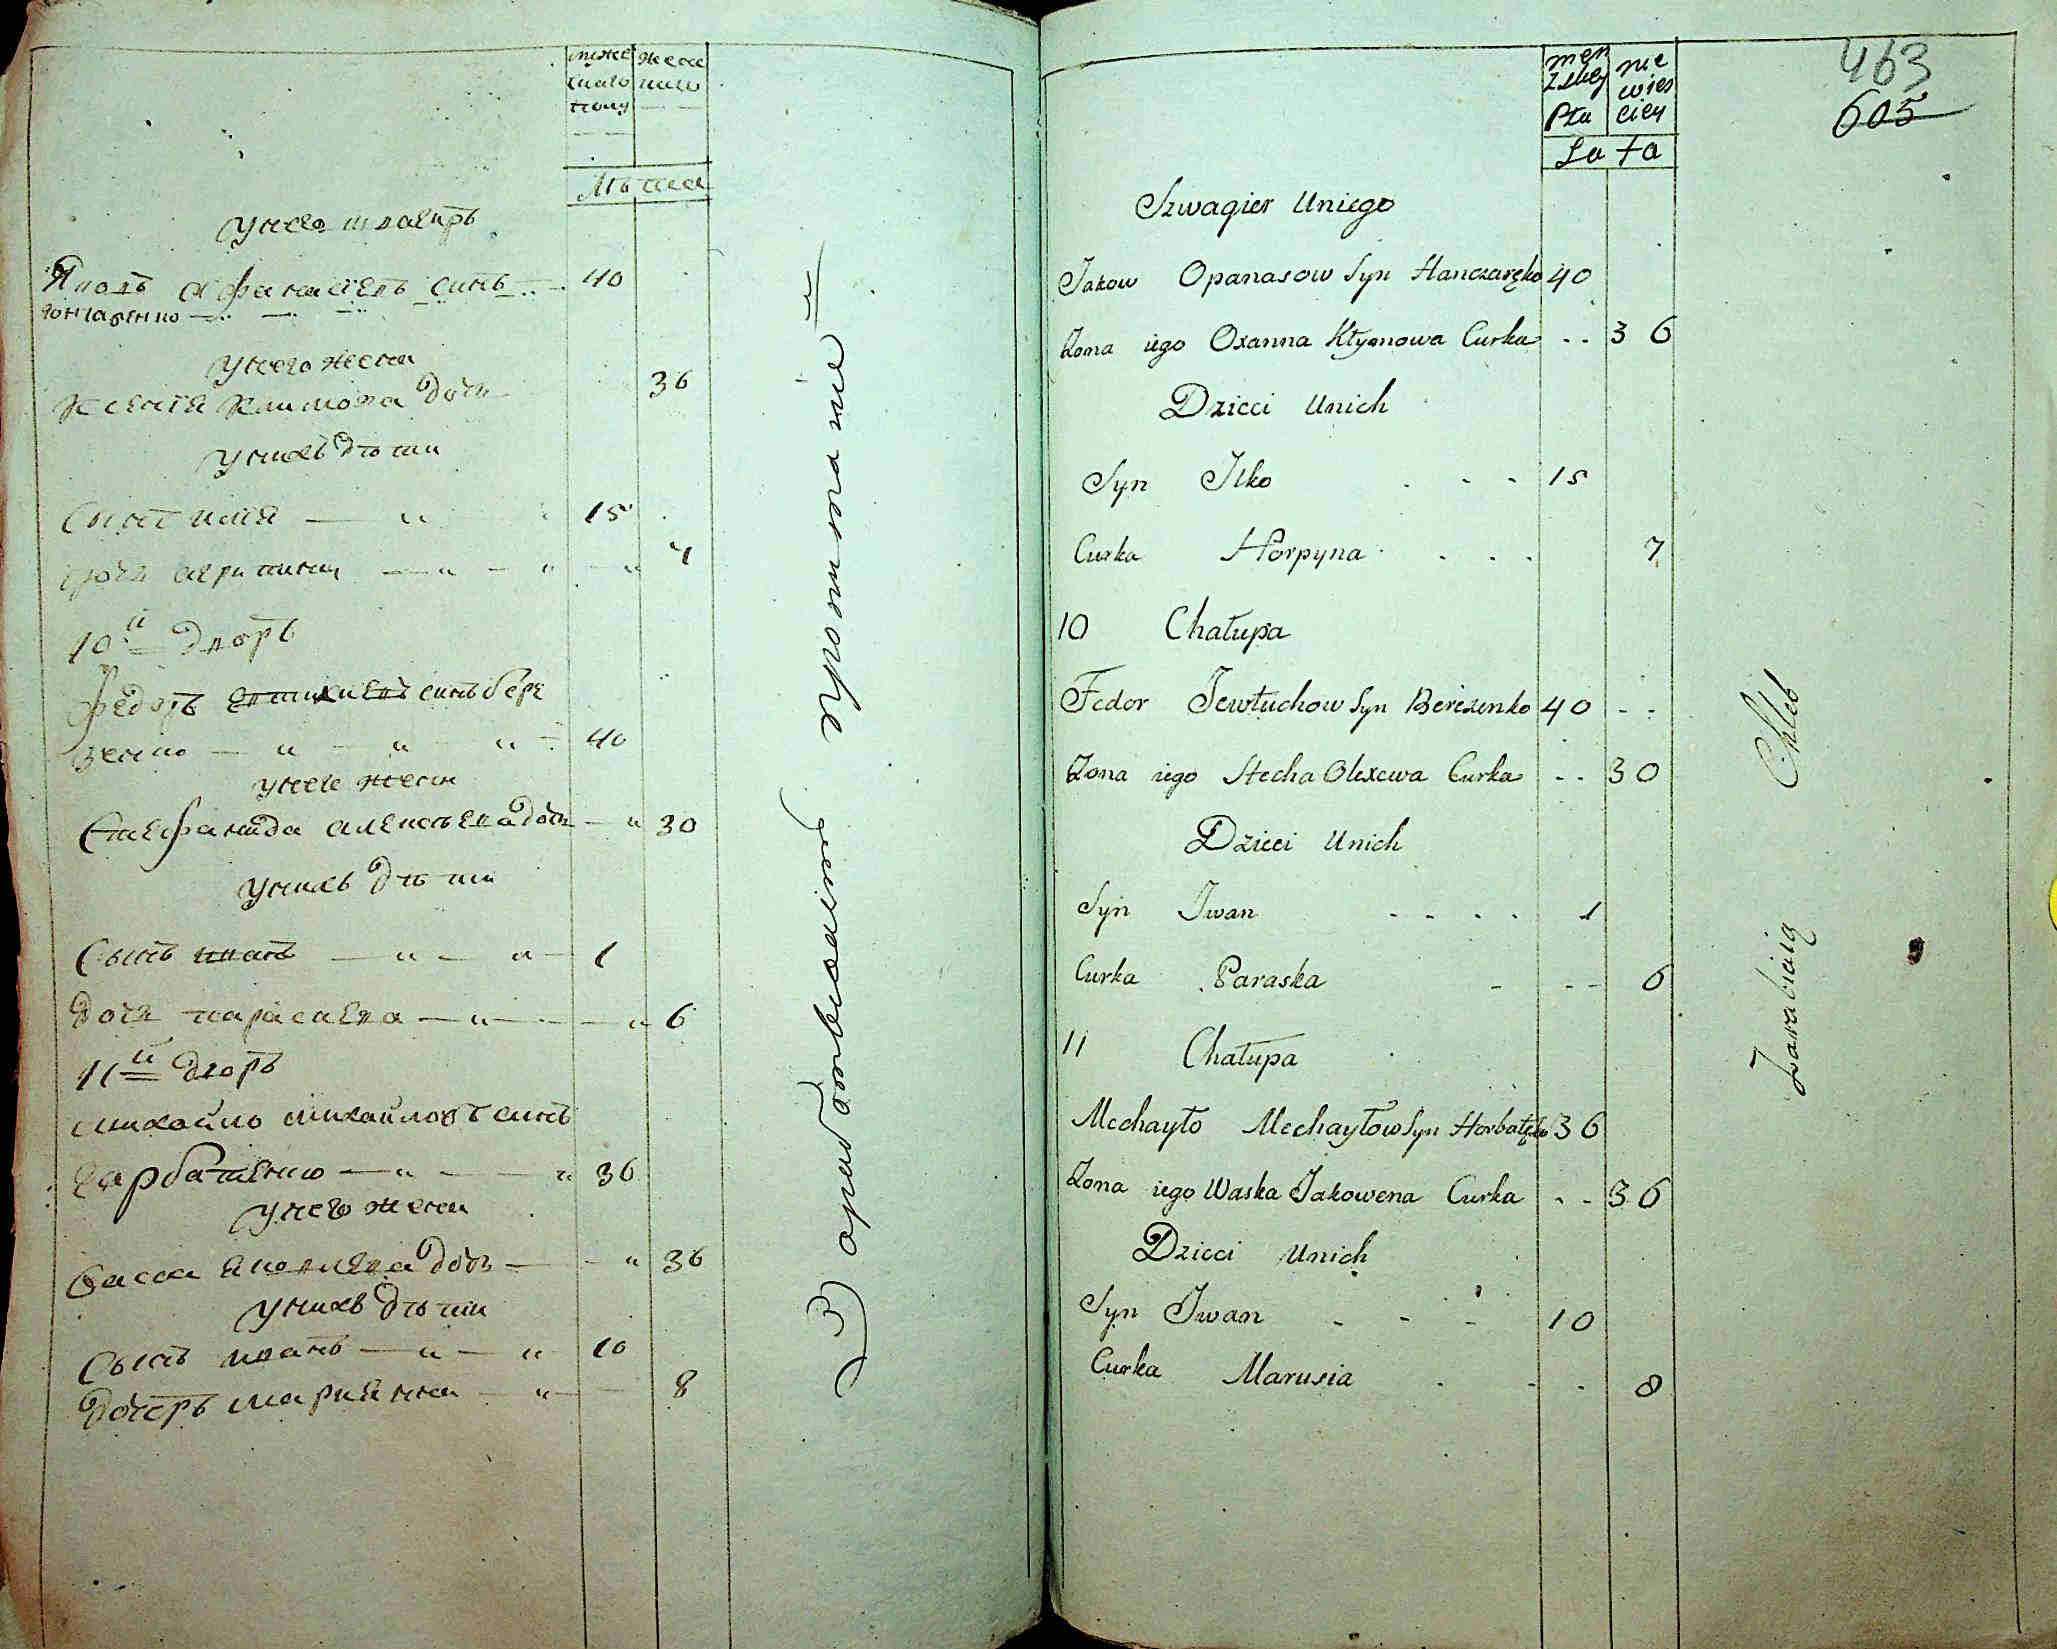 муже
скаго
полу
женс
каго
Лѣта
У него швагиръ
Яковъ Афанасіевъ синъ 40
гончаренко
У него жена
Ксенія Климова дочь 36
У нихъ дѣти
Сынъ илія 15
дочь агрипина 7
10й дворъ
Федоръ евтихиевъ синъ бере
зенко 40
У него жена
Стефанида алексѣева дочь 30
У нихъ дѣти
Сынъ иванъ 1
дочь парасаева 6
11й дворъ
михайло михайловъ синъ
гарбатенко 36
У него жена
Васса яковлева дочь 36
У нихъ дѣти
Сынъ иванъ 10
дочерь марианна 8
пропитание
зарабатываютъ
463
605
męz
zkiey
Płu
nie
wies
ciey
Lata
Szwagier Uniego
Jakow Opanasow Syn Hanczaręko 40
Zona iego Oxanna Kłymowa Curka 36
Dzieci Unich
Syn Ilko 15
Curka Horpyna 7
10 Chałupa
Fedor Jewtuchow Syn Berezenko 40
Zona iego Stecha Olexewa Curka 30
Dzieci Unich
Syn Jwan 1
Curka Paraska 6
11 Chałupa
Mechayło Mechayłow Syn Horbatęko 36
Zona iego Waska Jakowena Curka 36
Dzieci Unich
Syn Jwan 10
Curka Marusia 8
Zarabiaią Chleb